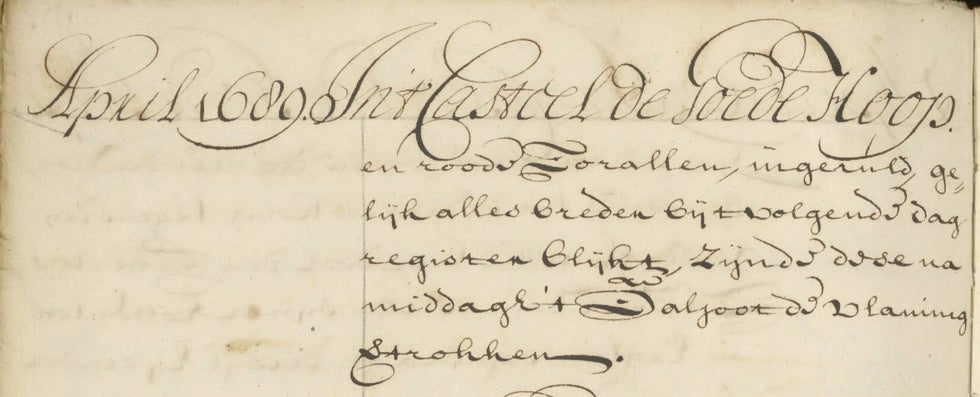 April 1689. In't Casteel de Goede Hoop.
en roode Corallen, ingeruld, ge-
lijk alles breder bij t volgende dag
register blijkt, zijnde dese na
middagh 't Galjoot de Vlaming